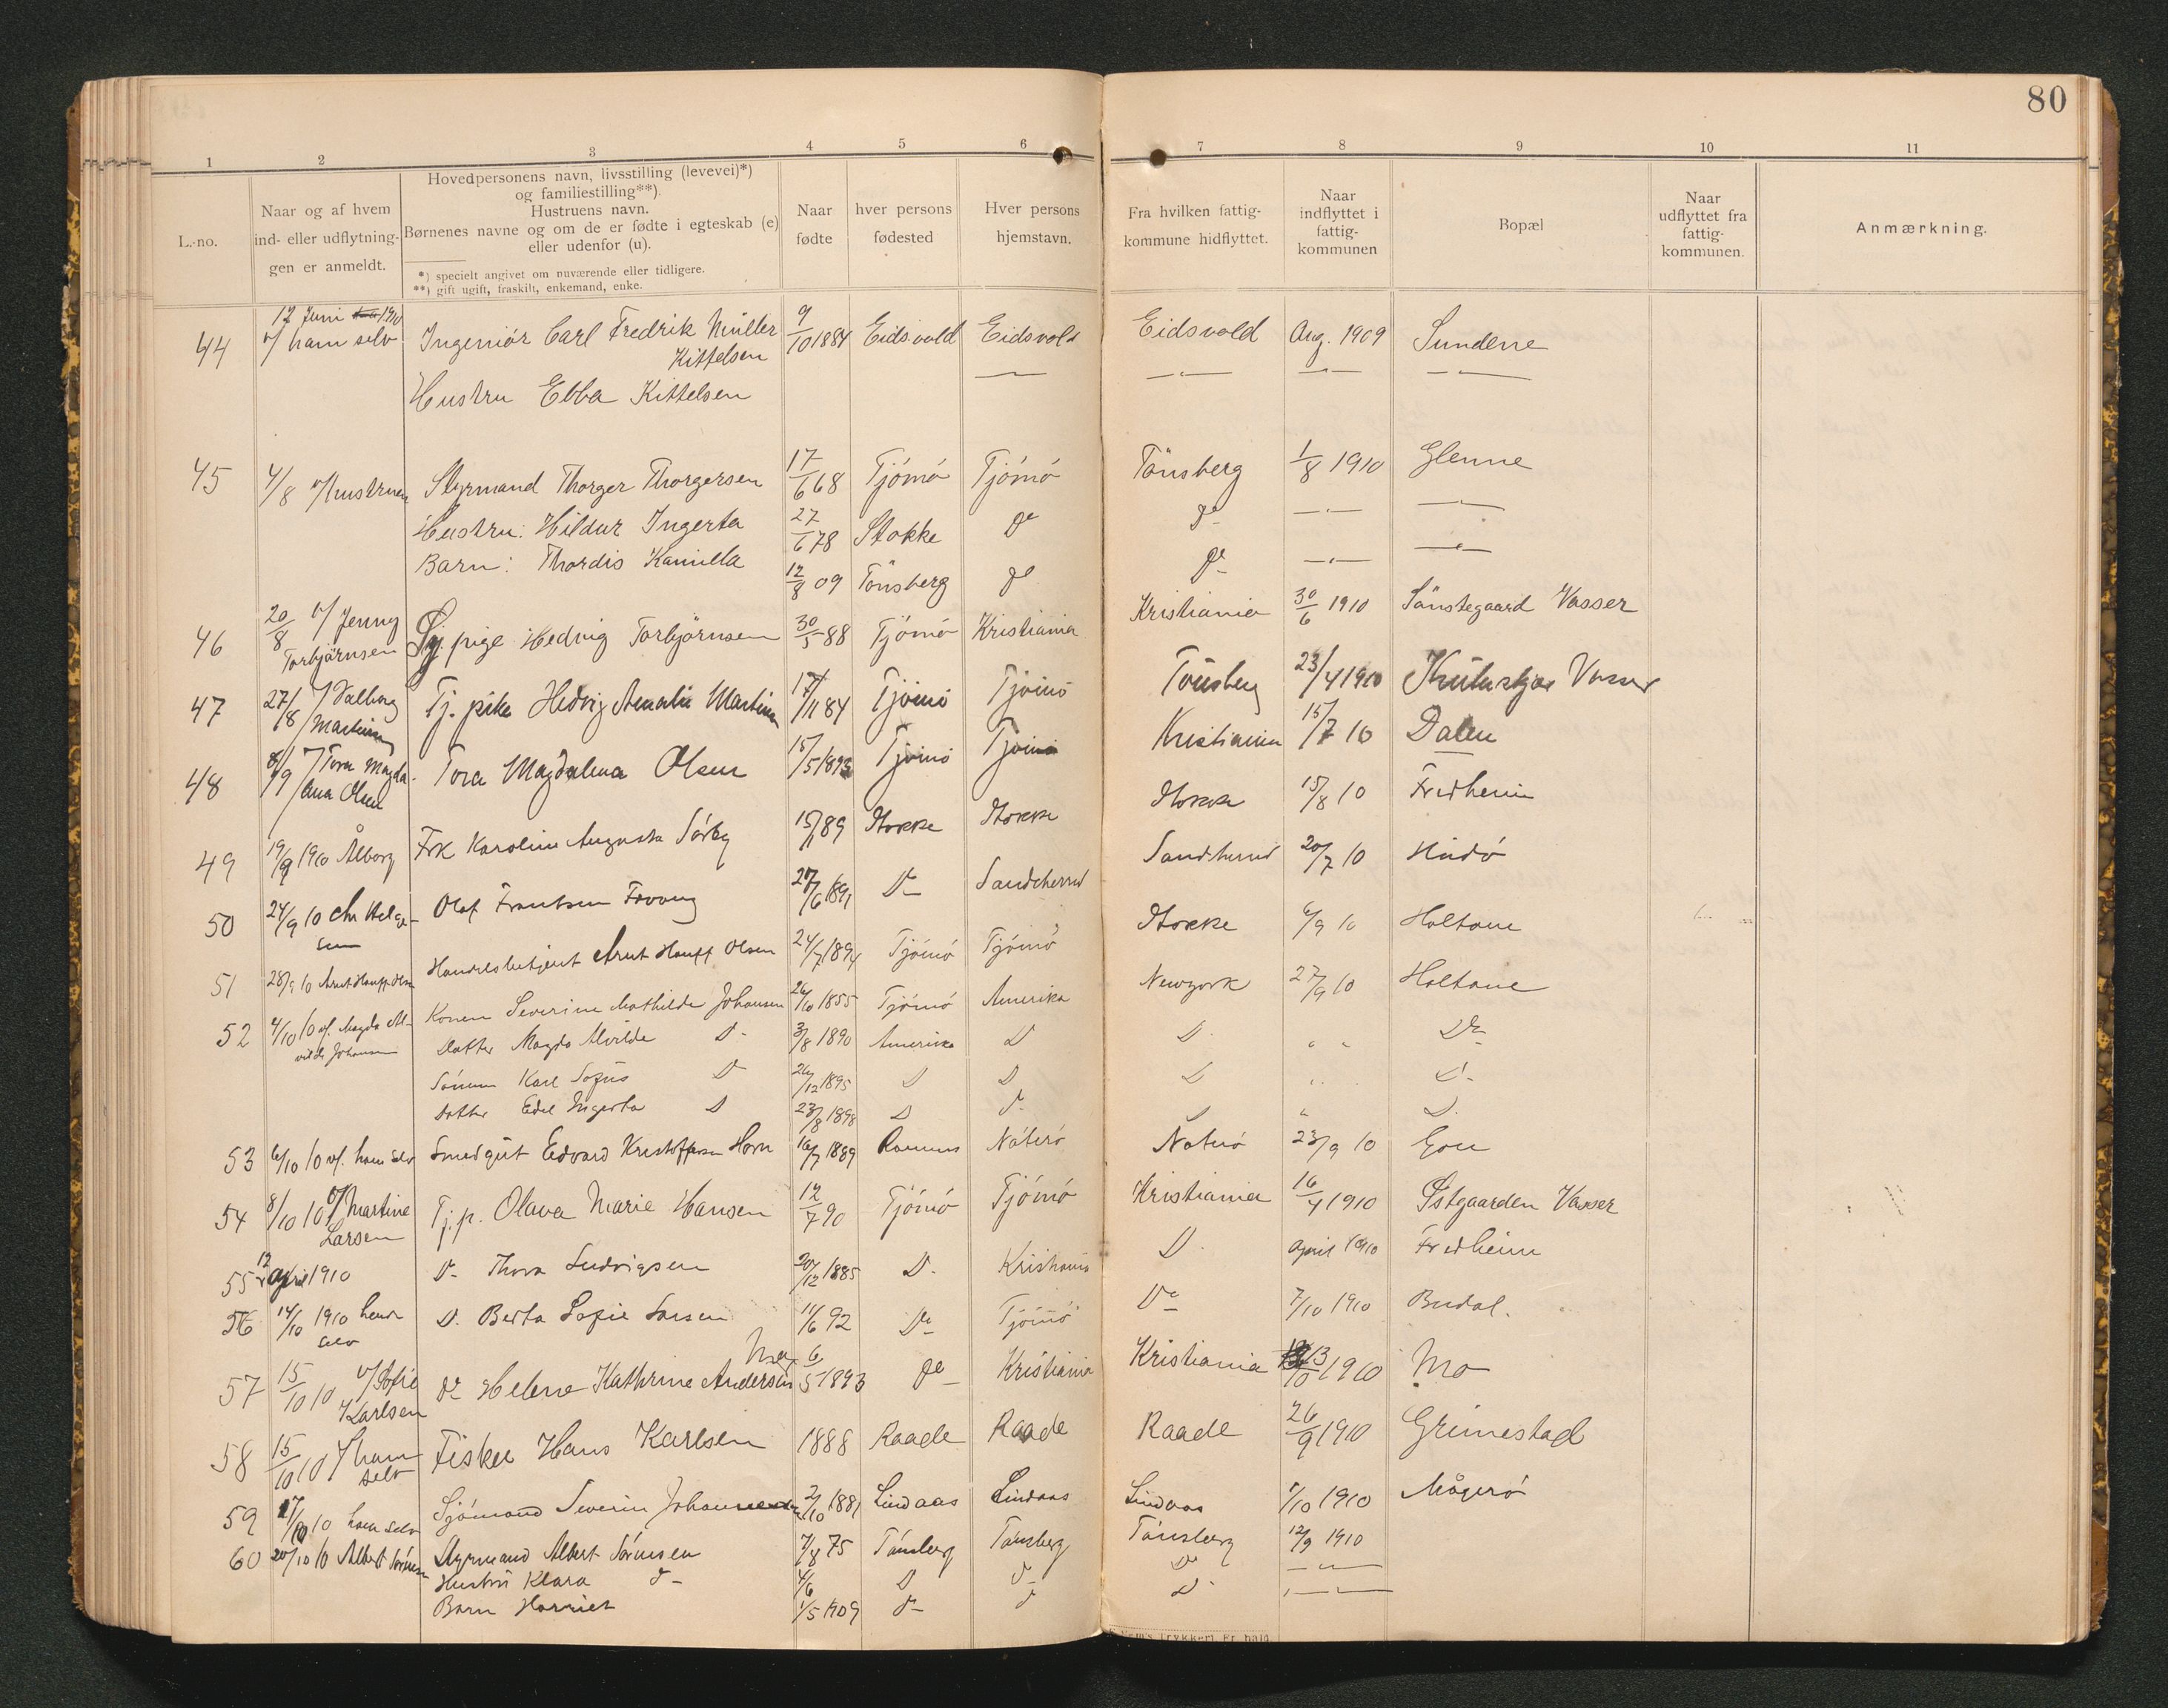 80
1 2 3 4 5 6 7 8 9 10 11
L.-no.
Naar og af hvem
ind- eller udflytnin-
gen er anmeldt.
Hovedpersonens navn, livsstilling (levevei)*)
og familiestilling**).
Hustruens navn.
Børnenes navne og om de er fødte i egteskab (e)
eller udenfor (u).
*) specielt angivet om nuværende eller tidligere.
**) gift ugift, fraskilt, enkemand, enke.
Naar
fødte
hver persons
fødested
Hver persons
hjemstavn.
Fra hvilken fattig-
kommune hidflyttet.
Naar
indflyttet i
fattig-
kommunen
Bopæl
Naar
udflyttet fra
fattig-
kommunen.
Anmærkning.
17 Juni 1910
44 v/ ham selv Ingeniör Carl Fredrik Müller 9/10 1884 Eidsvold Eidsvold Eidsvold Aug. 1909 Sundene
Kittelsen — — — —
Hustru Ebba Kittelsen
45 4/8 v/hustruen Styrmand Thorger Thorgersen 17/6 68 Tjömö Tjömö Tönsberg 1/8 1910 Glenne
Hustru: Hildur Ingerta 27/6 78 Stokke do do — —
Barn: Thordis Kamilla 12/8 09 Tönsberg do do — —
46 20/8 v/ Jenny Torbjörnsen Sy pige Hedvig Torbjörnsen 30/5 88 Tjömö Kristiania Kristiania 30/6 1910 Sönstegaard Vasser
47 27/8 v/ Valborg Martinsen Tj. pike Hedvig Amalie Martinsen 17/11 84 Tjömö Tjömö Tönsberg 23/4 1910 Vasser
48 8/9 v/ Tora Magdalena Olsen Tora Magdalena Olsen 15/5 1893 Tjömö Tjömö Kristiania 15/7 10 Dalen
49 19/9 1910 Ålborg Frk Karoline Augusta Sörby 15/1 89 Stokke Stokke Stokke 15/8 10 Fredheim
50 24/9 10 Chr Helgesen Olof Frantsen 27/6 1891 Do Sandeherred Sandherred 20/7 10 Hudö
51 28/9 10 Arnt Hauff Olsen Handelsbetjent Arnt Hauff Olsen 24/7 1894 Tjömö Tjömö Stokke 6/9 10 Holtane
52 4/10 10 v/. Magda Alvilde Johansen Konen Severine Mathilde Johansen 26/10 1855 Tjömö Amerika Newyork 27/9 10 Holtane
Datter Magda Alvilde D 3/8 1890 Amerika D D " " Do
Sönnen Karl Sofus D 26/12 1895 D D D " " D
Datter Edel Ingerta D 23/8 1898 D D D " D.
53 6/10 10 v/. ham selv Smedgut Edvard Kristoffersen Horn 16/7 1889 Ramnes Nöterö Nöterö 23/9 10 Gon
54 8/10 10 v/ Martine Larsen Tj. p. Olava Marie Hansen 12/7 90 Tjömö Tjömö Kristiania 16/4 1910 Østgaarden Vasser
55 12 april 1910 D- Thora Ludvigsen 20/12 1885 D. Kristiania D. april 1910 Fredheim
56 14/10 1910 hende selv D. Berta Sofie Larsen 11/6 92 Do Tjömö Do 7/10 1910 Budal.
57 15/10 10 v/ Sofie Karlsen Do Helene Kathrine Andersen Mo 6/5 1893 do Kristiania Kristiania 13/10 1910 Mo
58 15/10 10 v/ ham selv Fisker Hans Karlsen 1888 Raade Raade Raade 26/9 1910 Grimestad
59 17/10 10 ham selv Sjömand Severin Johannessen 2/10 1881 Lindaas Lindaas Lindaas 1/10 1910 Mågerö
60 20/10 10 Albert Sörensen Styrmand Albert Sörensen 7/8 75 Tönsberg Tönsberg Tönsberg 12/9 1910
Hustru Klara D- 4/6 D D- Do —
Barn Harriet 1/5 1909 D- D D. —